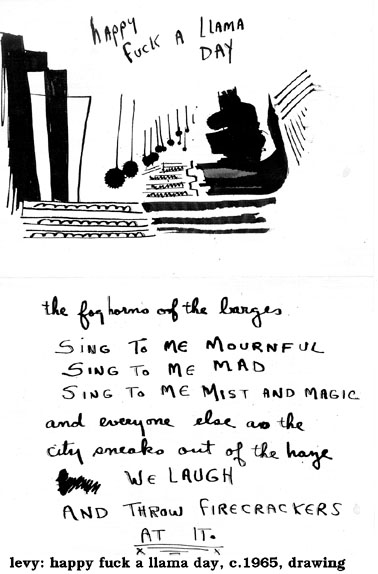 happy
fuck a LLAMA
DAY
the foghorns of the barges
SING TO ME MOURNFUL
SING TO ME MAD
SING TO ME MIST AND MAGIC
and everyone else as the
city sneaks out of the haze
WE LAUGH
AND THROW FIRECRACKERS
AT IT.
levy: happy fuck a llama day, c.1965, drawing